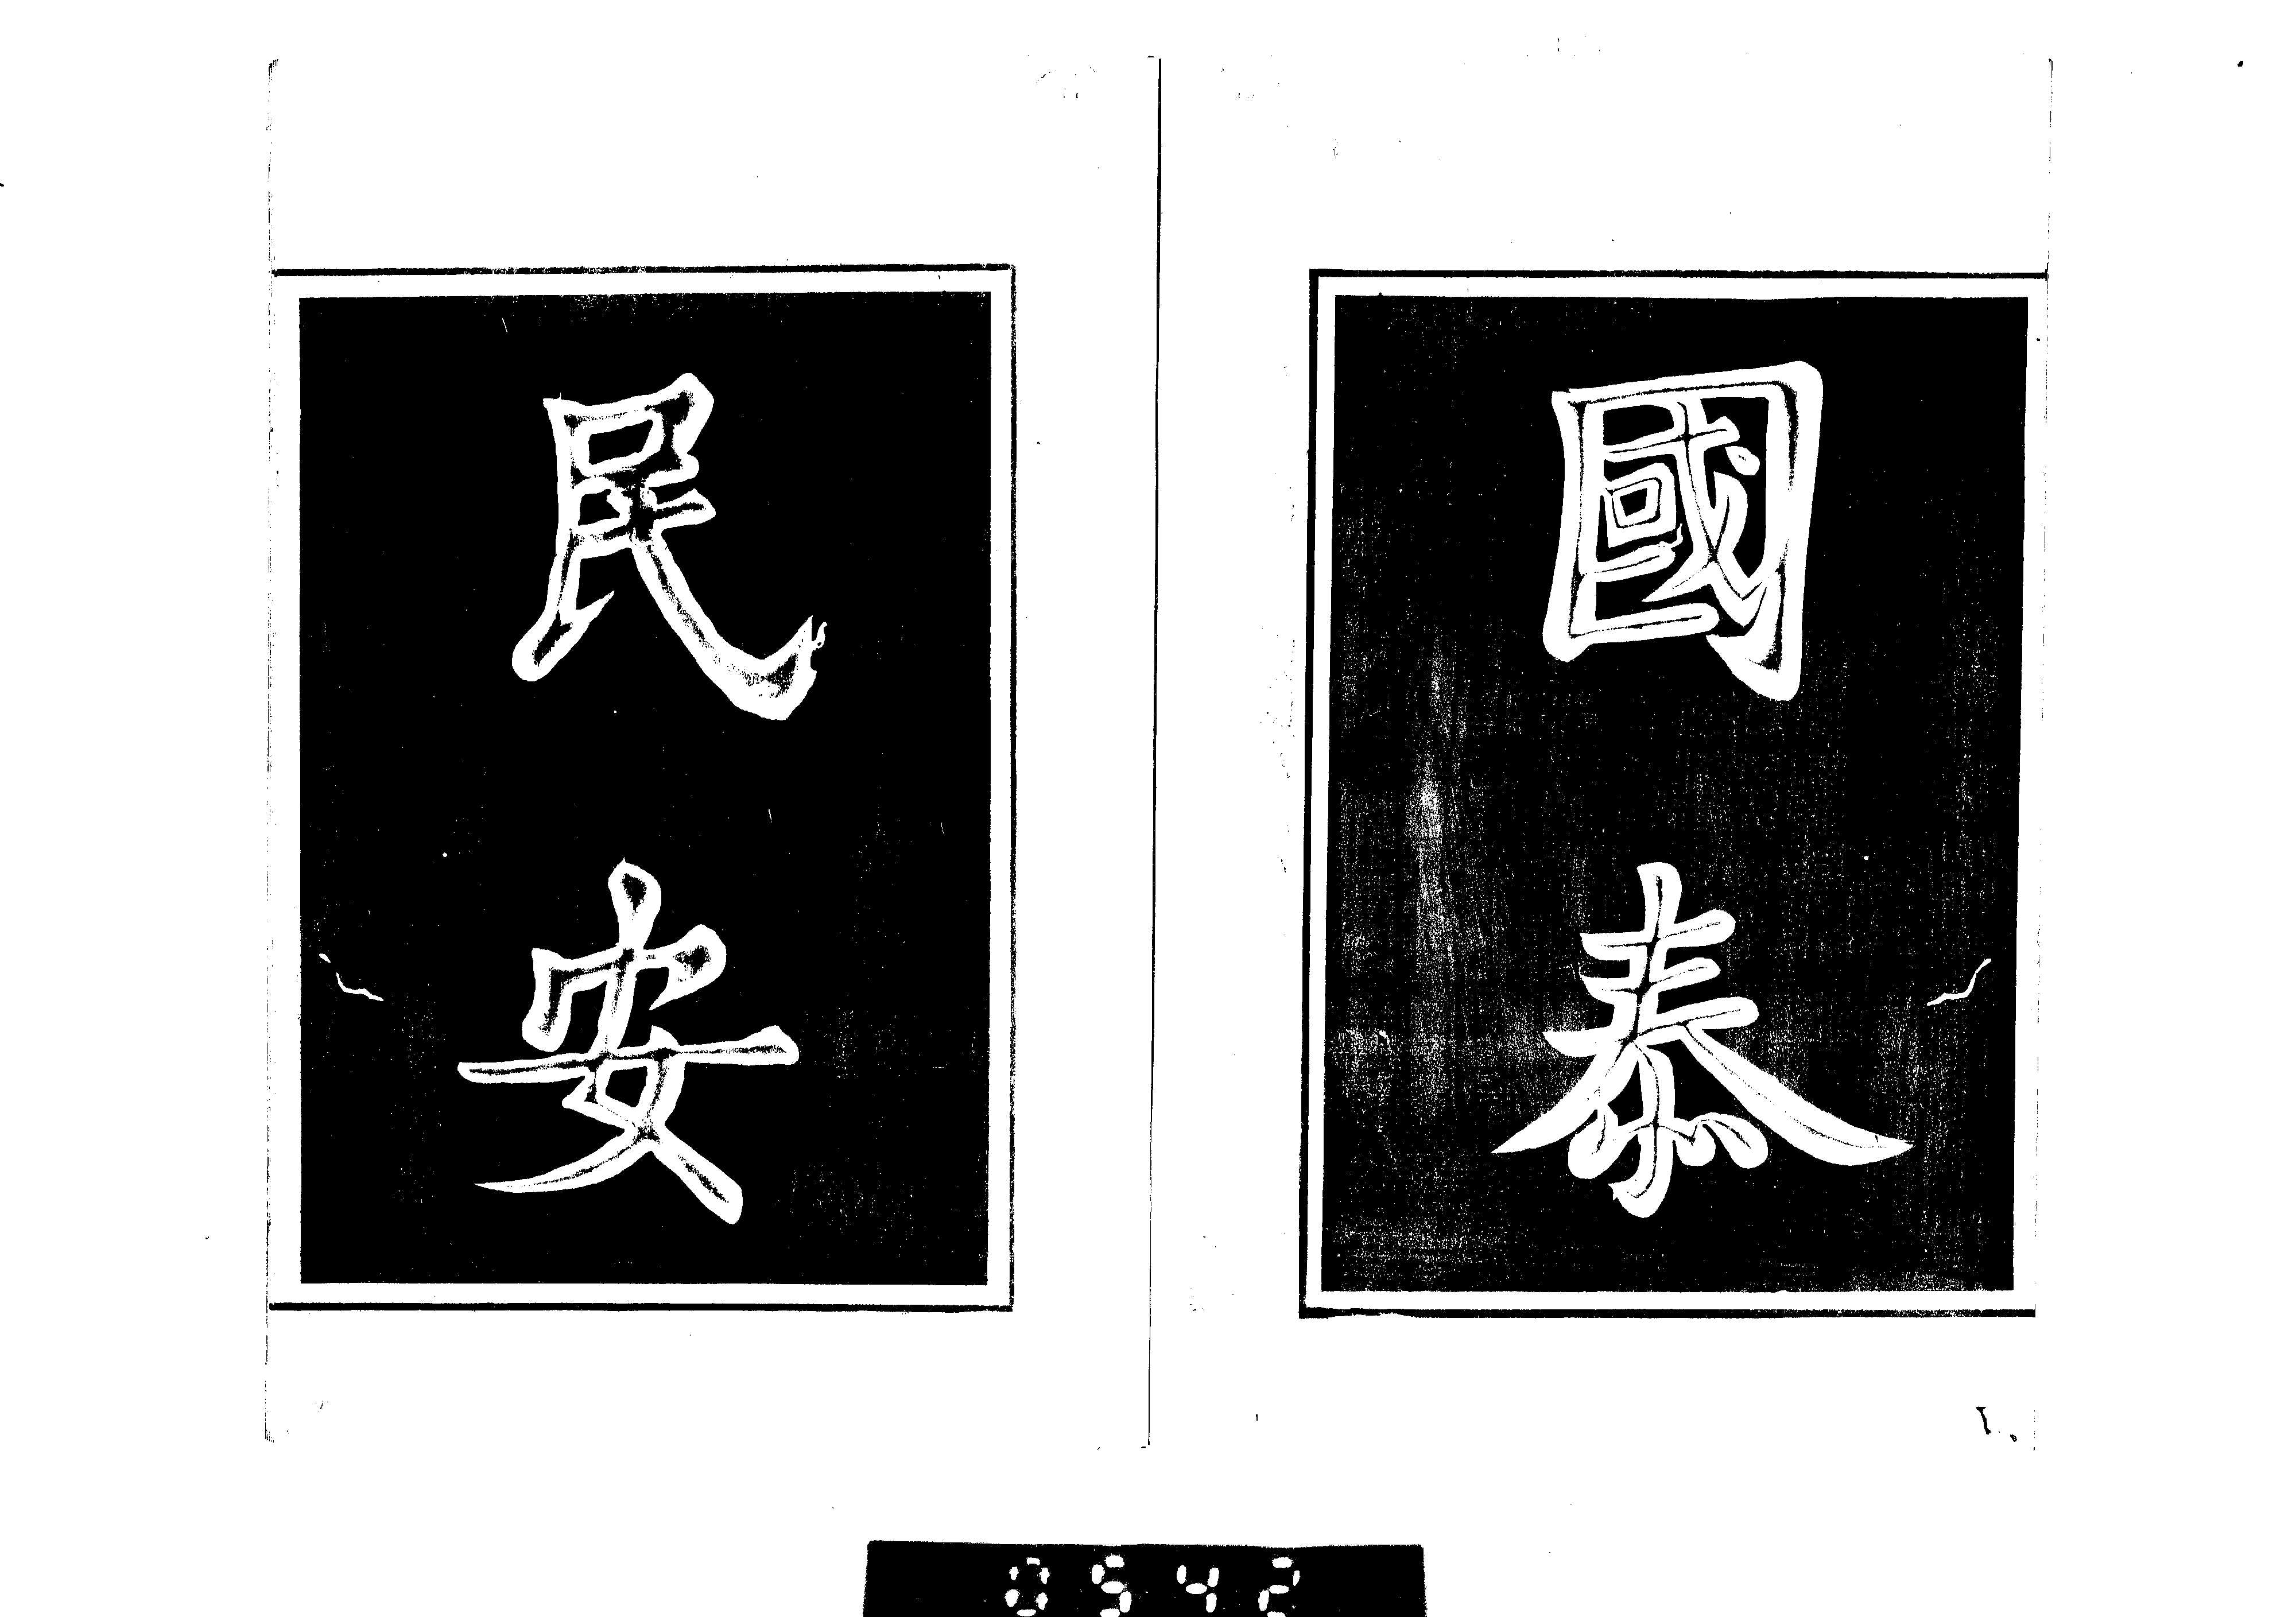 國泰
民安
0542